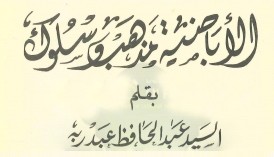 الأباضية مذهب وسلوك
بقلم
السيد عبد الحافظ عبد ربه